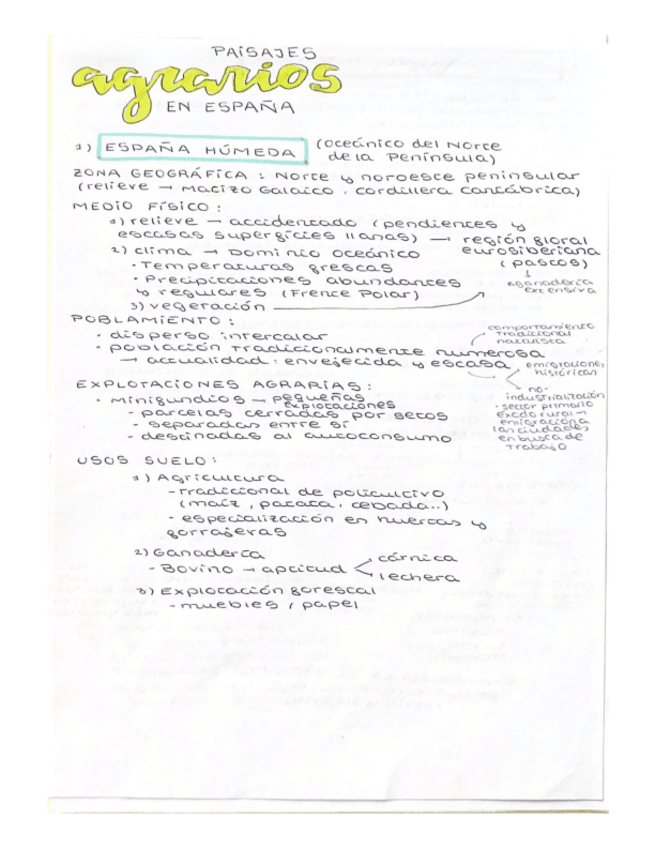 PAISAJES
agrarios
EN ESPAÑA
1) ESPAÑA HÚMEDA (Oceánico del Norte
de la Península)
ZONA GEOGRÁFICA : Norte y noroeste peninsular
(relieve → Macizo Galaico, cordillera cantábrica)
MEDIO FÍSICO :
1) relieve → accidentado (pendientes y
escasas superficies llanas) → región floral
eurosiberiana
2) clima → Dominio oceánico
(pastos)
· Temperaturas frescas
· Precipitaciones abundantes
y regulares (Frente Polar)
ganadería
extensiva
3) vegetación
POBLAMIENTO :
· disperso intercalar
comportamiento
tradicional
natalista
· población tradicionalmente numerosa
→ actualidad : envejecida y escasa
emigraciones
históricas
no-
industrialización
- sector primario
Éxodo rural →
emigración a
las ciudades
en busca de
trabajo
EXPLOTACIONES AGRARIAS :
· Minifundios → pequeñas
explotaciones
- parcelas cerradas por setos
- separadas entre sí
- destinadas al autoconsumo
USOS SUELO :
1) Agricultura
- Tradicional de policultivo
(maíz, patata, cebada..)
- especialización en huertas y
forrajeras
2) Ganadería
- Bovino → aptitud
cárnica
lechera
3) Explotación forestal
- muebles / papel